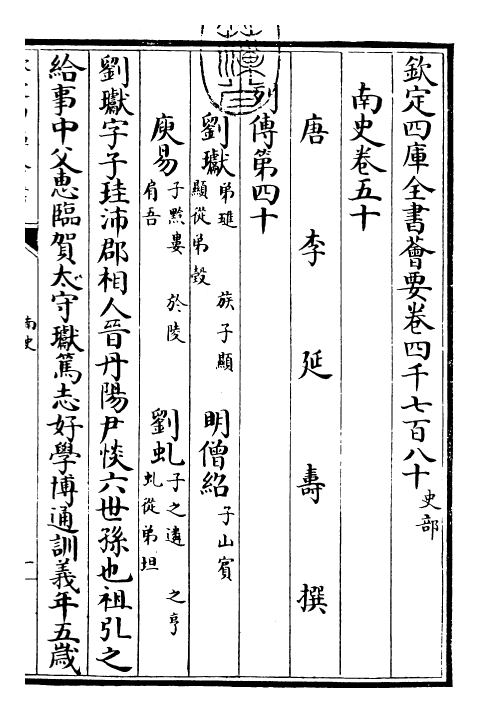 欽定四庫全書薈要卷四千七百八十 史部
南史卷五十
唐李延壽撰
列傳第四十
劉瓛 弟璡 族子顯 顯從弟瑴 明僧紹 子山賓
庾易 子黔婁 於陵 肩吾 劉虬 子之遴 之亨 虬從弟坦
劉瓛字子珪沛郡相人晉丹陽尹惔六世孫也祖弘之
給事中父惠臨賀太守瓛篤志好學博通訓義年五歲
南史